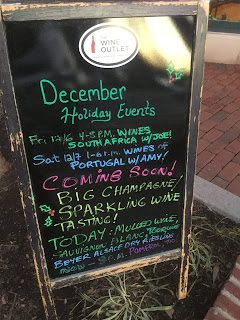 THE
WINE
OUTLET
December
Holiday Events
Fri 12/6 4-8 P.M. WINES
SOUTH AFRICA W/JOE!
Sat 12/7 1-6 P.M. WINES of
PORTUGAL W/AMY!
COMING SOON!
BIG CHAMPAGNE/
SPARKLING WINE
TASTING!
TODAY: MULLED WINE,
SAUVIGNON BLANC,
BEYER ALSACE DRY RIESLING